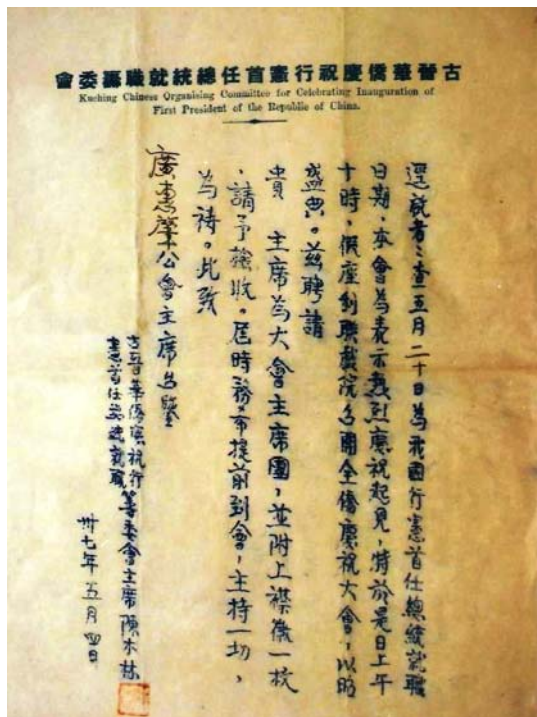 古晉華僑慶祝行憲首任總統就職籌委會
Kuching Chinese Organising Committee for Celebrating Inauguration of
First President of the Republic of China.
逕啟者:查五月二十日為我國行憲首任總統就職
日期,本會為表示熱烈慶祝起見,特於是日上午
十時,假座聯戲院召開全僑慶祝大會,以昭
盛典。茲聘請
貴 主席為大會主席團,並附上襟徽一枚
,請予檢收。屆時務希提前到會,主持一切,
為禱。此致
廣惠肇公會主席台鑒
古晉華僑慶祝行
憲首任總統就職
籌委會主席陳木林
卅七年五月四日